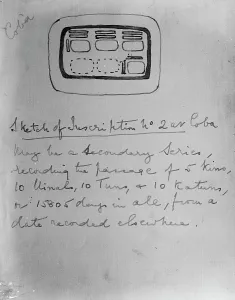 Coba
Sketch of Inscription No 2 at Coba
May be a Secondary Series,
recording the passage of 5 Kins,
10 Uinals, 10 Tuns, & 10 Katuns,
or 15805 days in all, from a
date recorded elsewhere.